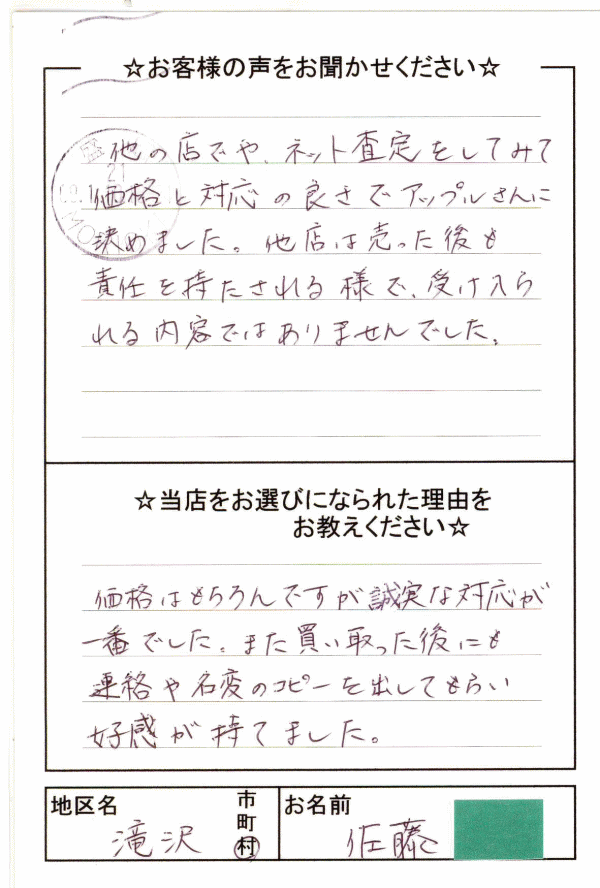 ☆お客様の声をお聞かせください☆
他の店でや、ネット査定をしてみて
価格と対応の良さでアップルさんに
決めました。他店は売った後も
責任を持たされる様で、受け入ら
れる内容ではありませんでした。
☆当店をお選びになられた理由を
お教えください☆
価格はもちろんですが誠実な対応が
一番でした。また買い取った後にも
連絡や名変のコピーを出してもらい
好感が持てました。
地区名 滝沢 市町村
お名前 佐藤